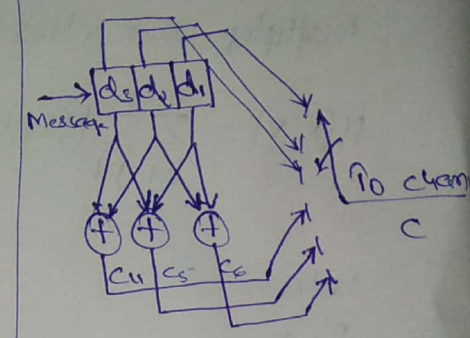 d3 d2 d1
Message
To chan
C
+ + +
C4 C5 C6